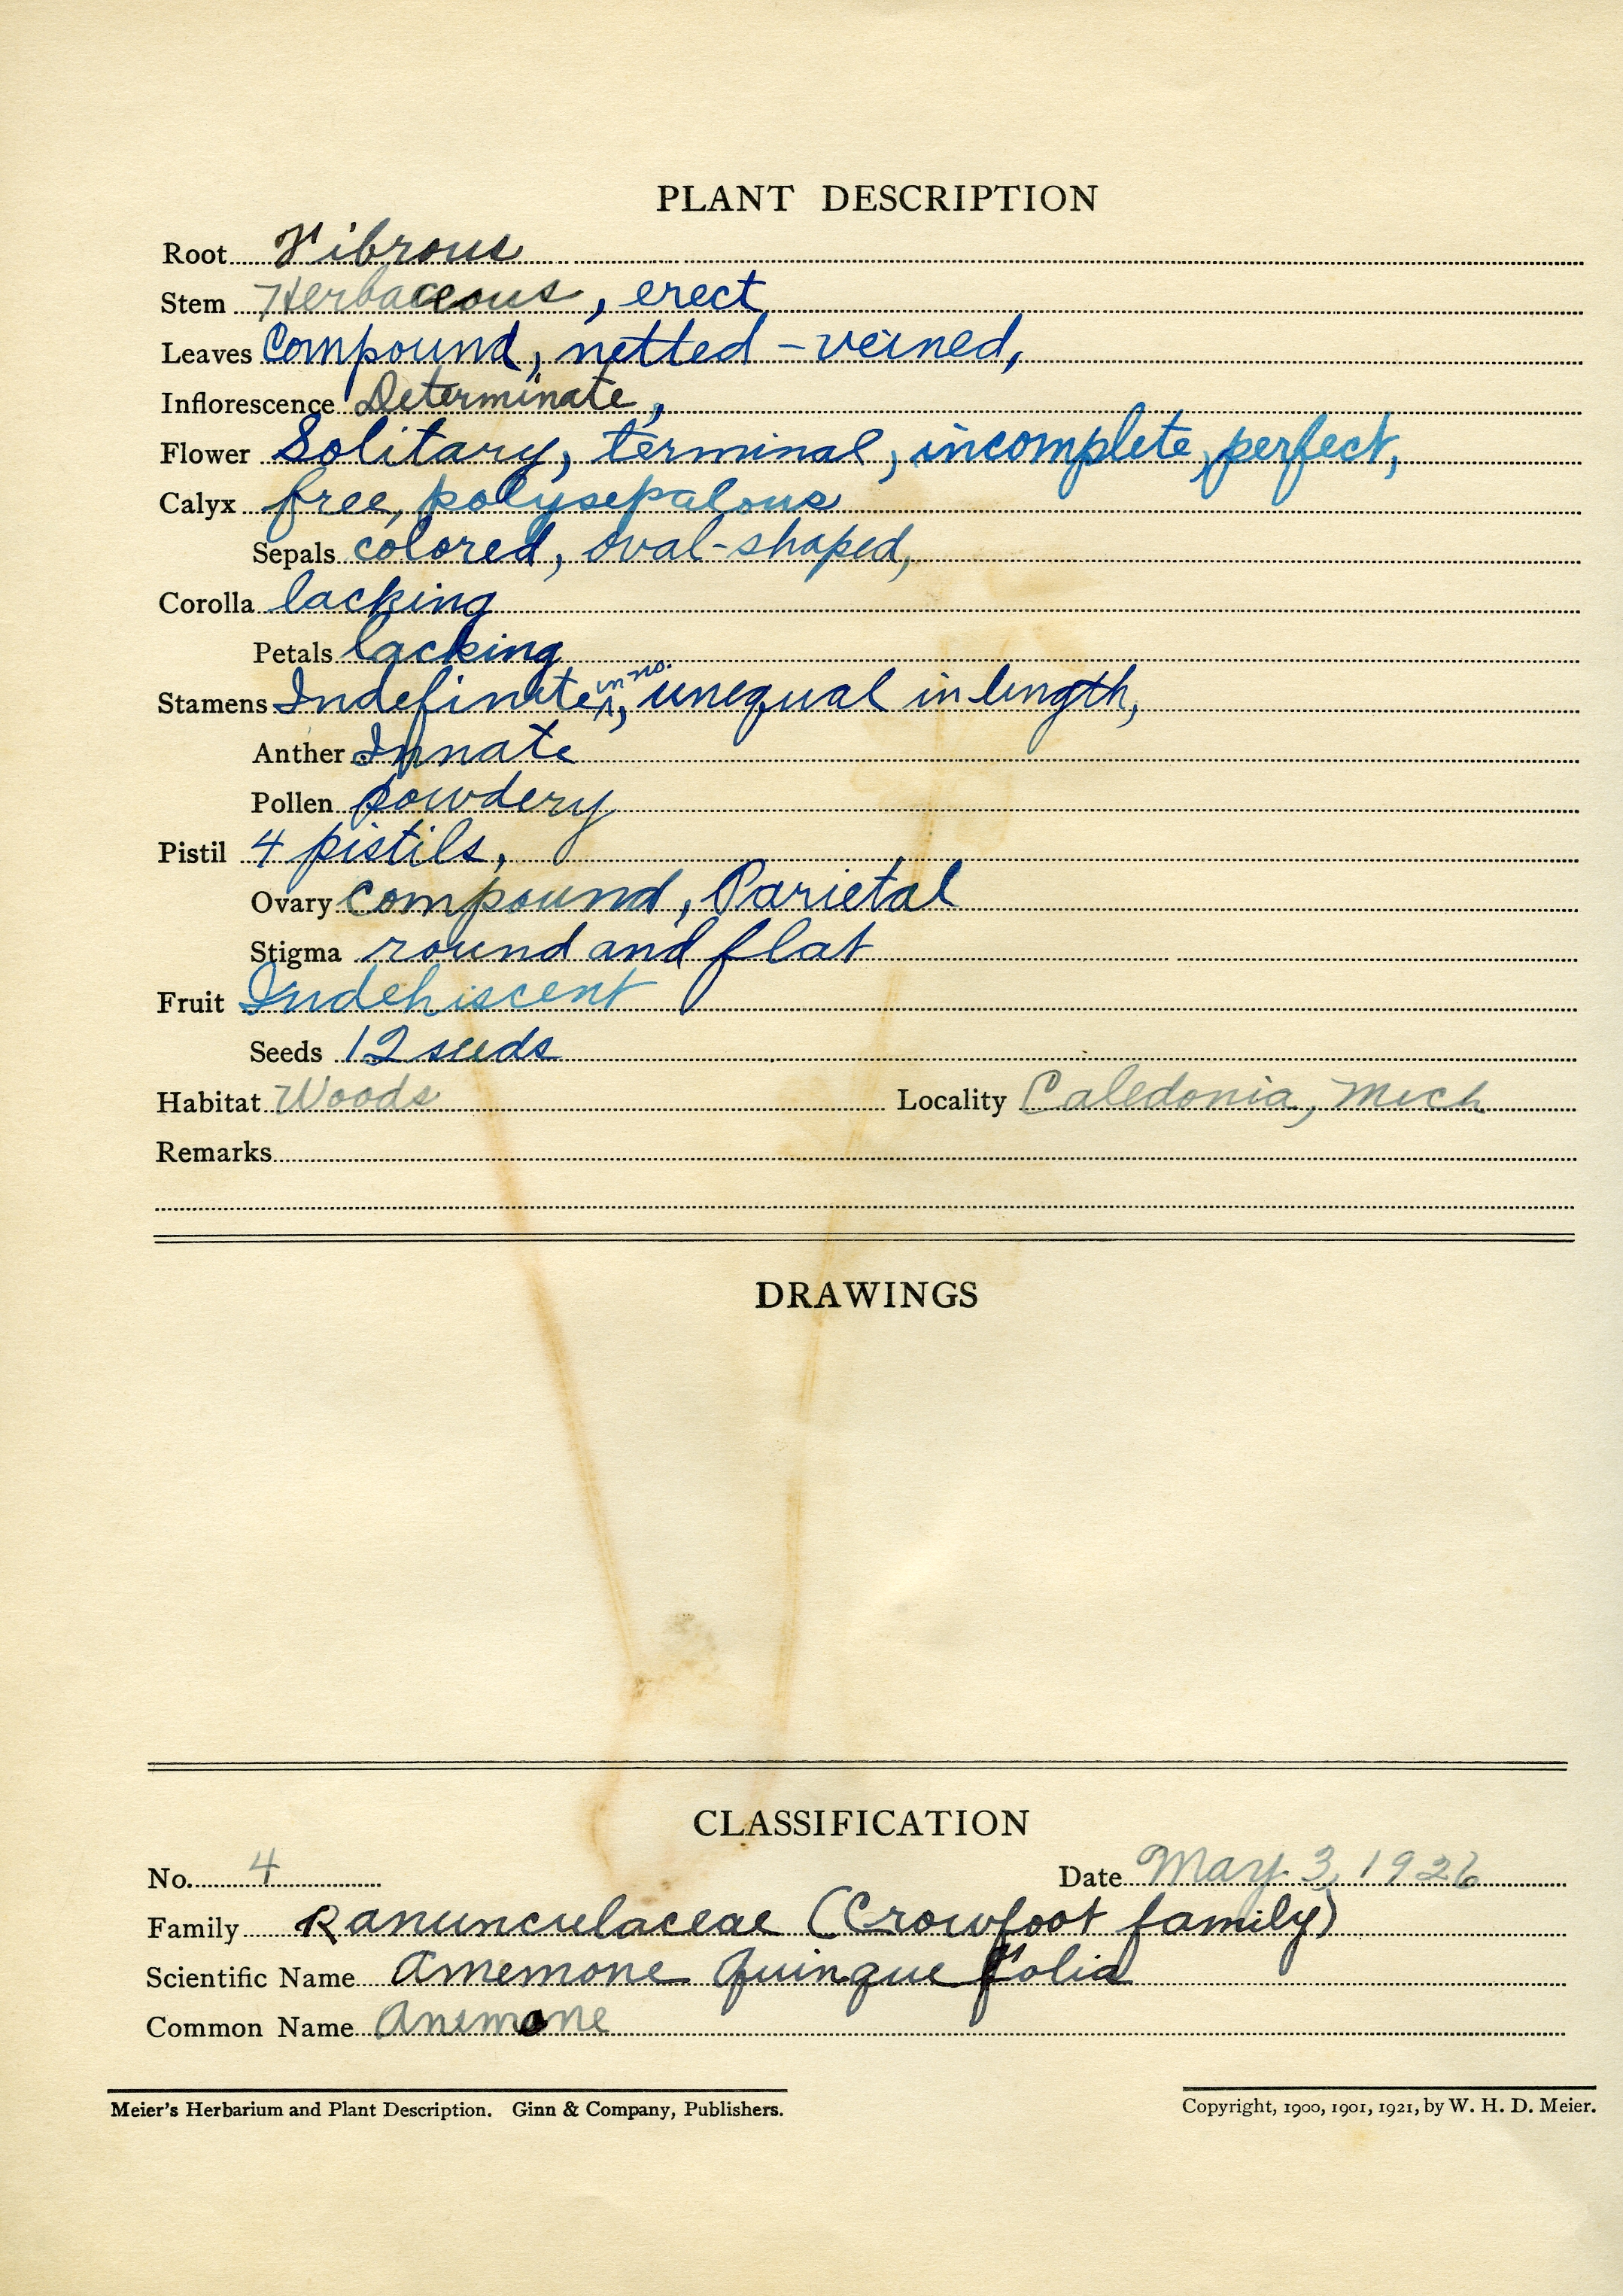 PLANT DESCRIPTION
Root Fibrous
Stem Herbaceous, erect
Leaves Compound, netted-veined,
Inflorescence Determinate,
Flower Solitary, terminal, incomplete, perfect,
Calyx free, polysepalous
Sepals colored, oval-shaped,
Corolla lacking
Petals lacking
Stamens Indefinite in no., unequal in length,
Anther Innate
Pollen Powdery
Pistil 4 pistils,
Ovary compound, Parietal
Stigma round and flat
Fruit Indehiscent
Seeds 12 seeds
Habitat Woods Locality Caledonia, Mich
Remarks
DRAWINGS
CLASSIFICATION
No. 4 Date May 3, 1926
Family Ranunculaceae (Crowfoot family)
Scientific Name Anemone Quinque folia
Common Name Anemone
Meier's Herbarium and Plant Description. Ginn & Company, Publishers. Copyright, 1900, 1901, 1921, by W. H. D. Meier.